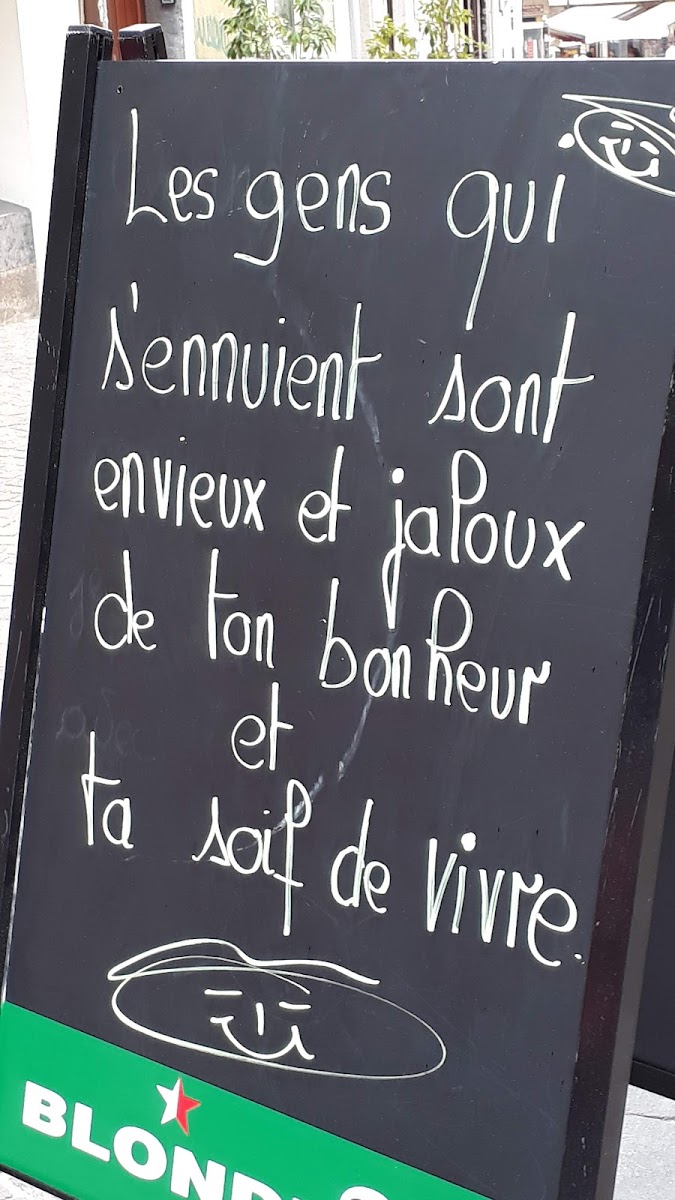 Les gens qui
s'ennuient sont
envieux et jaloux
de ton bonheur
et
ta soif de vivre.